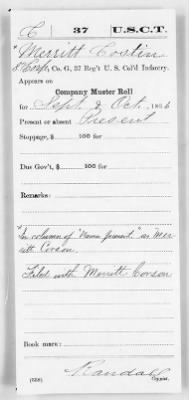 C 37 U.S.C.T.
Merritt Costin
Corp, Co. G, 37 Reg't U. S. Col'd Infantry.
Appears on
Company Muster Roll
for Sept & Oct, 1864
Present or absent Present
Stoppage, $ 100 for
Due Gov't, $ 100 for
Remarks:
"In column of "Names present" as Mer-
ritt Corson.
Filed with Merritt Corson
Book mark:
Randall
(358) Copyist.